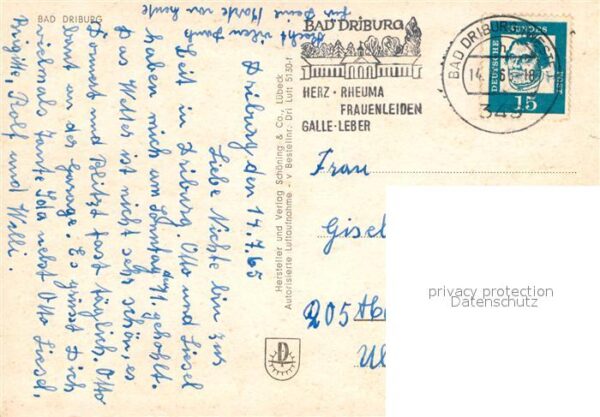 BAD DRIBURG
Recht vielen Dank
für Deine Karte von heute
Driburg den 14.7.65
Liebe Nichte bin zur
Zeit in Driburg. Otto und Liesel
haben mich am Sonntag geholt.
Das Wetter ist nicht sehr schön, es
Donnert und Blitzt fast täglich. Otto
baut an der Garage. Es grüsst Dich
vielmals Tante Lola nebst Otto Liesel,
Brigitte, Rolf und Willi.
Hersteller und Verlag Schöning & Co., Lübeck
Autorisierte Luftaufnahme - V Bestellnr. Dri Luft 5130-f
BAD DRIBURG
HERZ · RHEUMA
FRAUENLEIDEN
GALLE · LEBER
BAD DRIBURG
14.
349
DEUTSCHE
15
Frau
Gisel
205
privacy protection
Datenschutz
D